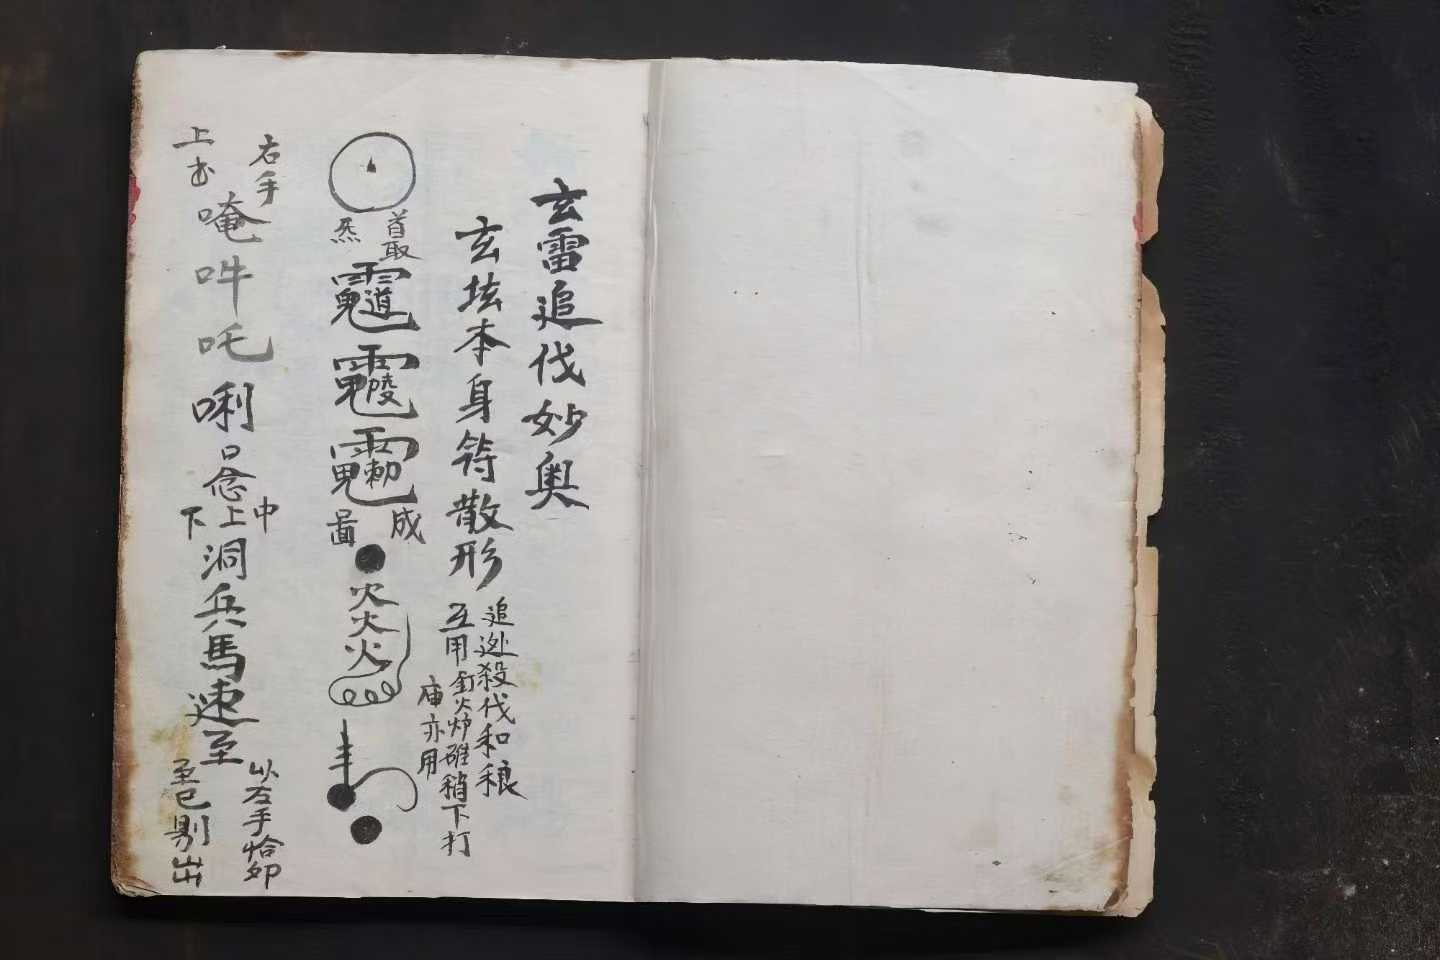 玄雷追伐妙奥
玄坛本身符散形
追逊殺伐和粮
互用釘火炉碓稍下打
庙亦用
首取
炁
成
啚
火
火
火
右手
上出
唵吽吒唎
口念
中
上
下
洞兵馬速至
以左手恰卯
至巳剔出